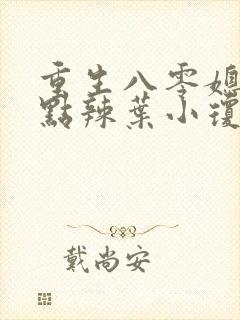 重生八零媳
點辣葉小瓊
戴尚安